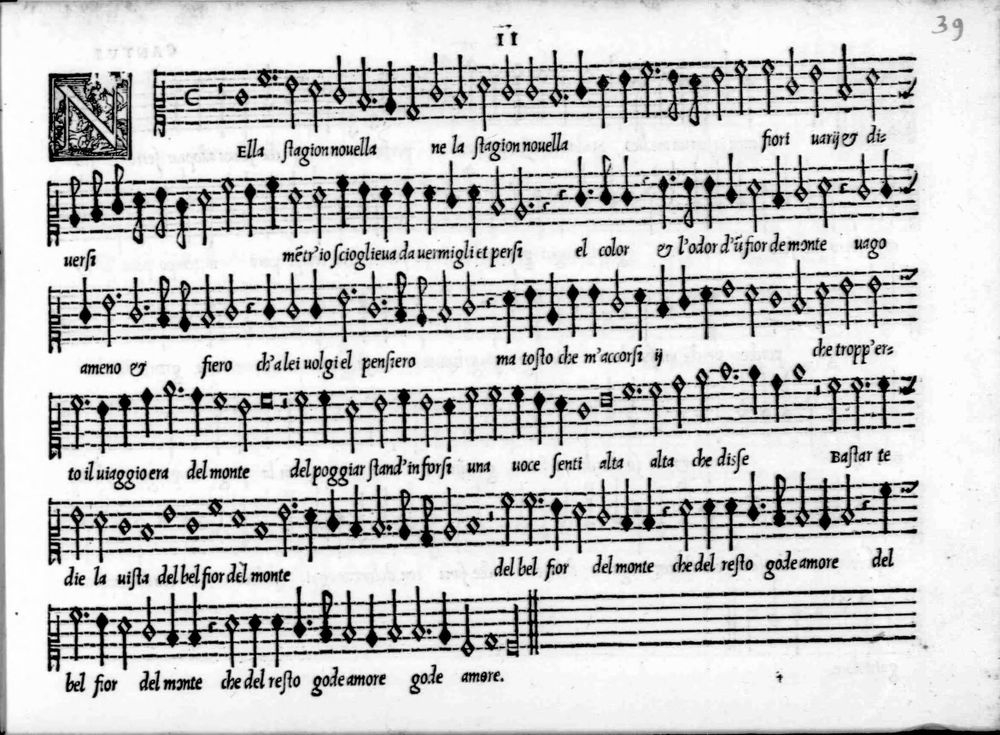 11
39
NElla stagion nouella ne la stagion nouella fiori uarij & di-
uersi mẽtr'io scioglieua da uermigli et persi el color & l'odor d'ũ fior de monte uago
ameno & fiero ch'a lei uolgi el pensiero ma tosto che m'accorsi ij che tropp'er=
to il uiaggio era del monte del poggiar stand' in forsi una uoce senti alta alta che disse Bastar te
die la uista del bel fior del monte del bel fior del monte che del resto gode amore del
bel fior del monte che del resto gode amore gode amore.